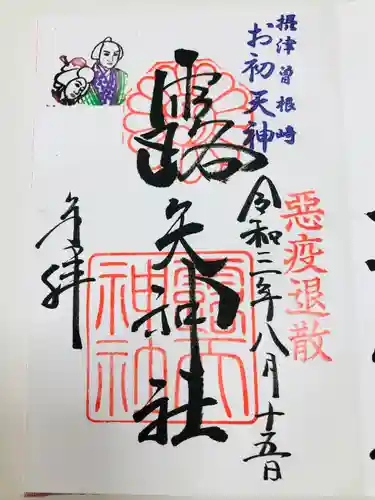 摂津曽根崎
お初天神
悪疫退散
令和三年八月十五日
露天神社
奉拝